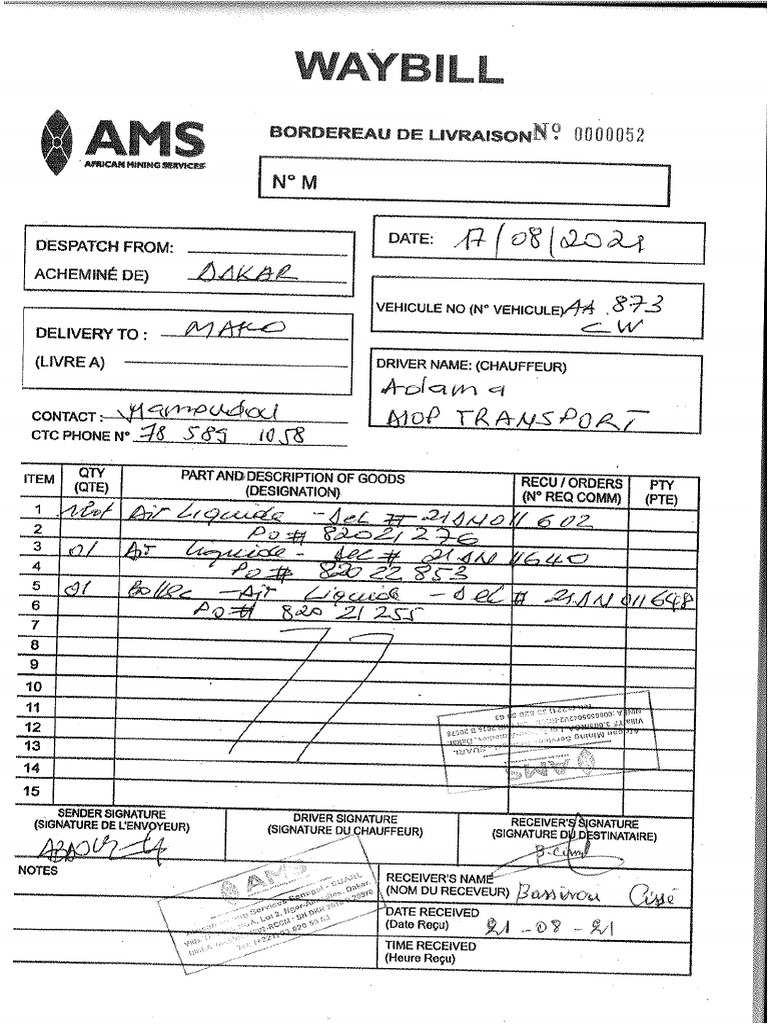 WAYBILL
AMS
AFRICAN MINING SERVICES
BORDEREAU DE LIVRAISON Nº 0000052
N° M
DESPATCH FROM:
ACHEMINÉ DE) DAKAR
DATE: 17/08/2021
VEHICULE NO (N° VEHICULE) AA 873
CW
DELIVERY TO : MAKO
(LIVRE A)
DRIVER NAME: (CHAUFFEUR)
Adama
MOP TRANSPORT
CONTACT : Mamoudou
CTC PHONE N° 78 589 1058
ITEM QTY (QTE) PART AND DESCRIPTION OF GOODS (DESIGNATION) RECU / ORDERS (N° REQ COMM) PTY (PTE)
1 Air Liquide - Del # 21DN011602
2 PO# 82021276
3 01 Air Liquide - Del # 21DN11640
4 PO# 82022853
5 01 - Air Liquide - Del # 21DN011648
6 PO# 82021255
7
8
9
10
11
12
13
14
15
AMS
African Mining Services Senegal - SUARL
SENDER SIGNATURE
(SIGNATURE DE L'ENVOYEUR)
DRIVER SIGNATURE
(SIGNATURE DU CHAUFFEUR)
RECEIVER'S SIGNATURE
(SIGNATURE DU DESTINATAIRE)
NOTES
AMS
African Mining Services Senegal - SUARL
RECEIVER'S NAME
(NOM DU RECEVEUR) Bassirou Cissé
DATE RECEIVED
(Date Reçu) 21-08-21
TIME RECEIVED
(Heure Reçu)